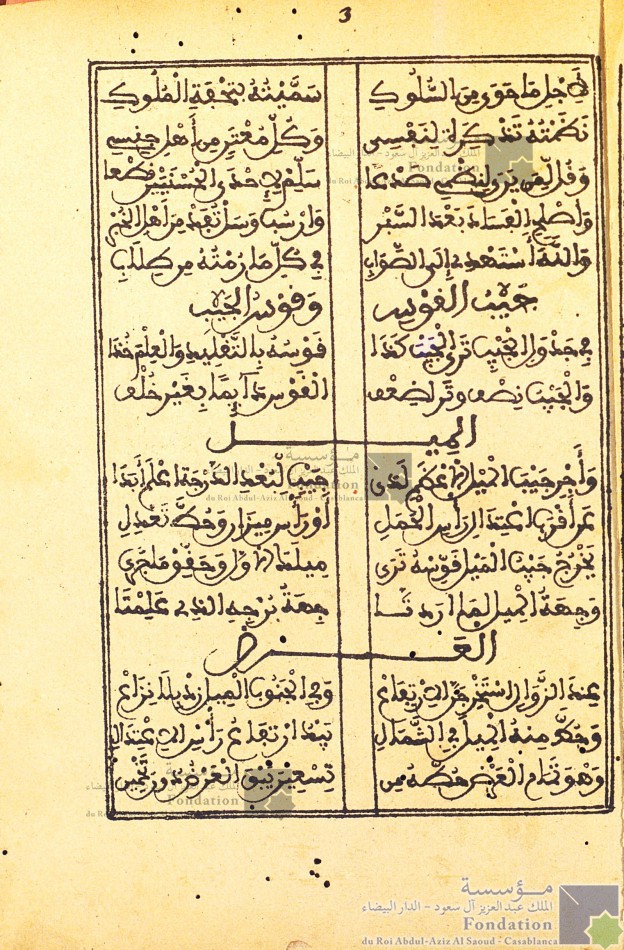 3
لِأَجْلِ مَا حَوَى مِنَ السُّلُوكِ سَمَّيْتُهُ بِتُحْفَةِ الْمُلُوكِ
نَظَمْتُهُ تَذْكِرَةً لِنَفْسِي وَكُلِّ مُعْتَنٍ مِنْ أَهْلِ جِنْسِي
وَقُل لِّمَن يَرَى لِنَظْمِي صَدْعَا سَلِّمْ لِإِحْدَى الْحُسْنَيَيْنِ قَطْعَا
وَأَصْلِحِ الْفَسَادَ بَعْدَ السَّبْرِ
وَاللَّهَ أَسْتَهْدِي إِلَى الصَّوَابِ فِي كُلِّ مَا رُمْتُهُ مِن طِلَابِ
جَيْبُ الْقَوْسِ وَقَوْسُ الْجَيْبِ
فِي جَدْوَلِ الْجَيْبِ تَرَى الْجَيْبَ كَذَا قَوْسُهُ بِالتَّقْلِيدِ وَالْعِلْمَ خُذَا
وَالْجَيْبُ نِصْفُ وَتَرٍ لِضِعْفِ الْقَوْسِ دَائِمًا بِغَيْرِ خُلْفِ
الْمَيْــل
جَيْبٍ لِبُعْدِ الدَّرَجَةِ اعْلَمْ أَبَدَا
عَنْ أَقْرَبِ اعْتِدَالِ رَأْسِ الْحَمَلِ أَوْ رَأْسِ مِيزَانٍ وَحُطَّ تَعْدِلِ
يَخْرُجُ جَيْبُ الْمَيْلِ قَوِّسْهُ تَرَى مَيْلَهَا الْأَوَّلَ وَحَقِّقْ مَا جَرَى
وَجِهَةُ الْمَيْلِ لِمَا أَرَدْتَــا جِهَةُ بُرْجِهِ الَّذِي عَلِمْتَا
الْعَــرْض
عِنْدَ الزَّوَالِ اسْتَخْرِجَنَّ الِارْتِفَاعْ وَفِي الْجَنُوبِ الْمَيْلَ زِدْ بِلَا نِزَاعْ
وَحُطَّ مِنْهُ الْمَيْلَ فِي الشَّمَالِ يَبْدُ ارْتِفَاعُ رَأْسِ الِاعْتِدَالِ
وَهْوَ تَمَامُ الْعَرْضِ حُطَّهُ مِنْ تِسْعِينَ يَبْقَ الْعَرْضُ دُونَ تَخْمِينْ
مؤسسة
الملك عبد العزيز آل سعود - الدار البيضاء
Fondation
du Roi Abdul-Aziz Al Saoud - Casablanca